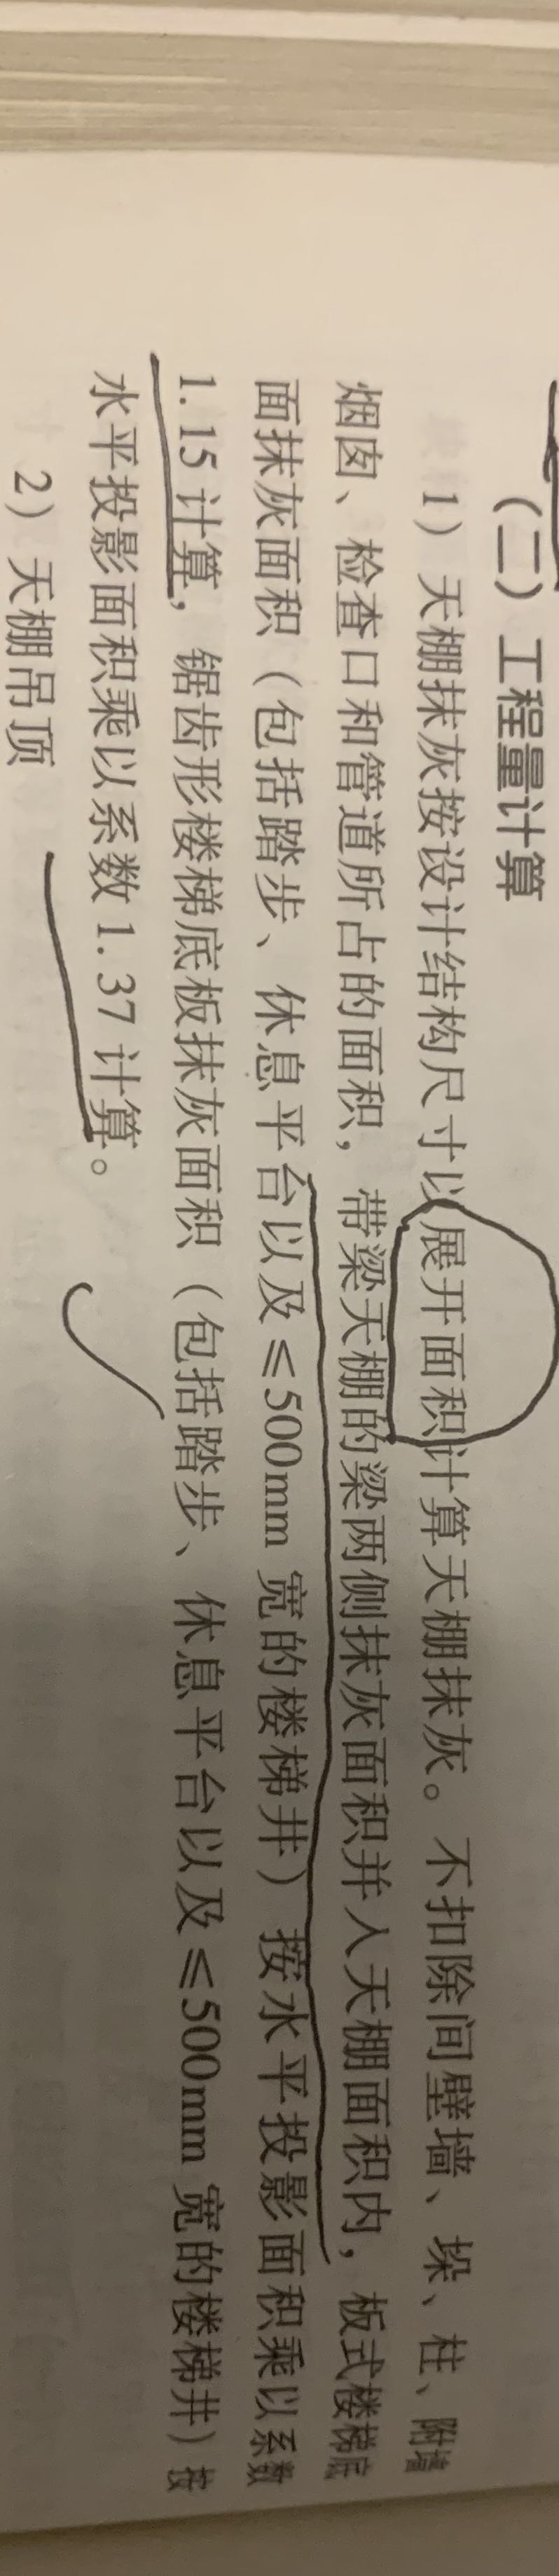 （二）工程量计算
1）天棚抹灰按设计结构尺寸以展开面积计算天棚抹灰。不扣除间壁墙、垛、柱、附墙
烟囱、检查口和管道所占的面积，带梁天棚的梁两侧抹灰面积并入天棚面积内，板式楼梯底
面抹灰面积（包括踏步、休息平台以及≤500mm 宽的楼梯井）按水平投影面积乘以系数
1.15 计算，锯齿形楼梯底板抹灰面积（包括踏步、休息平台以及≤500mm 宽的楼梯井）按
水平投影面积乘以系数 1.37 计算。
2）天棚吊顶